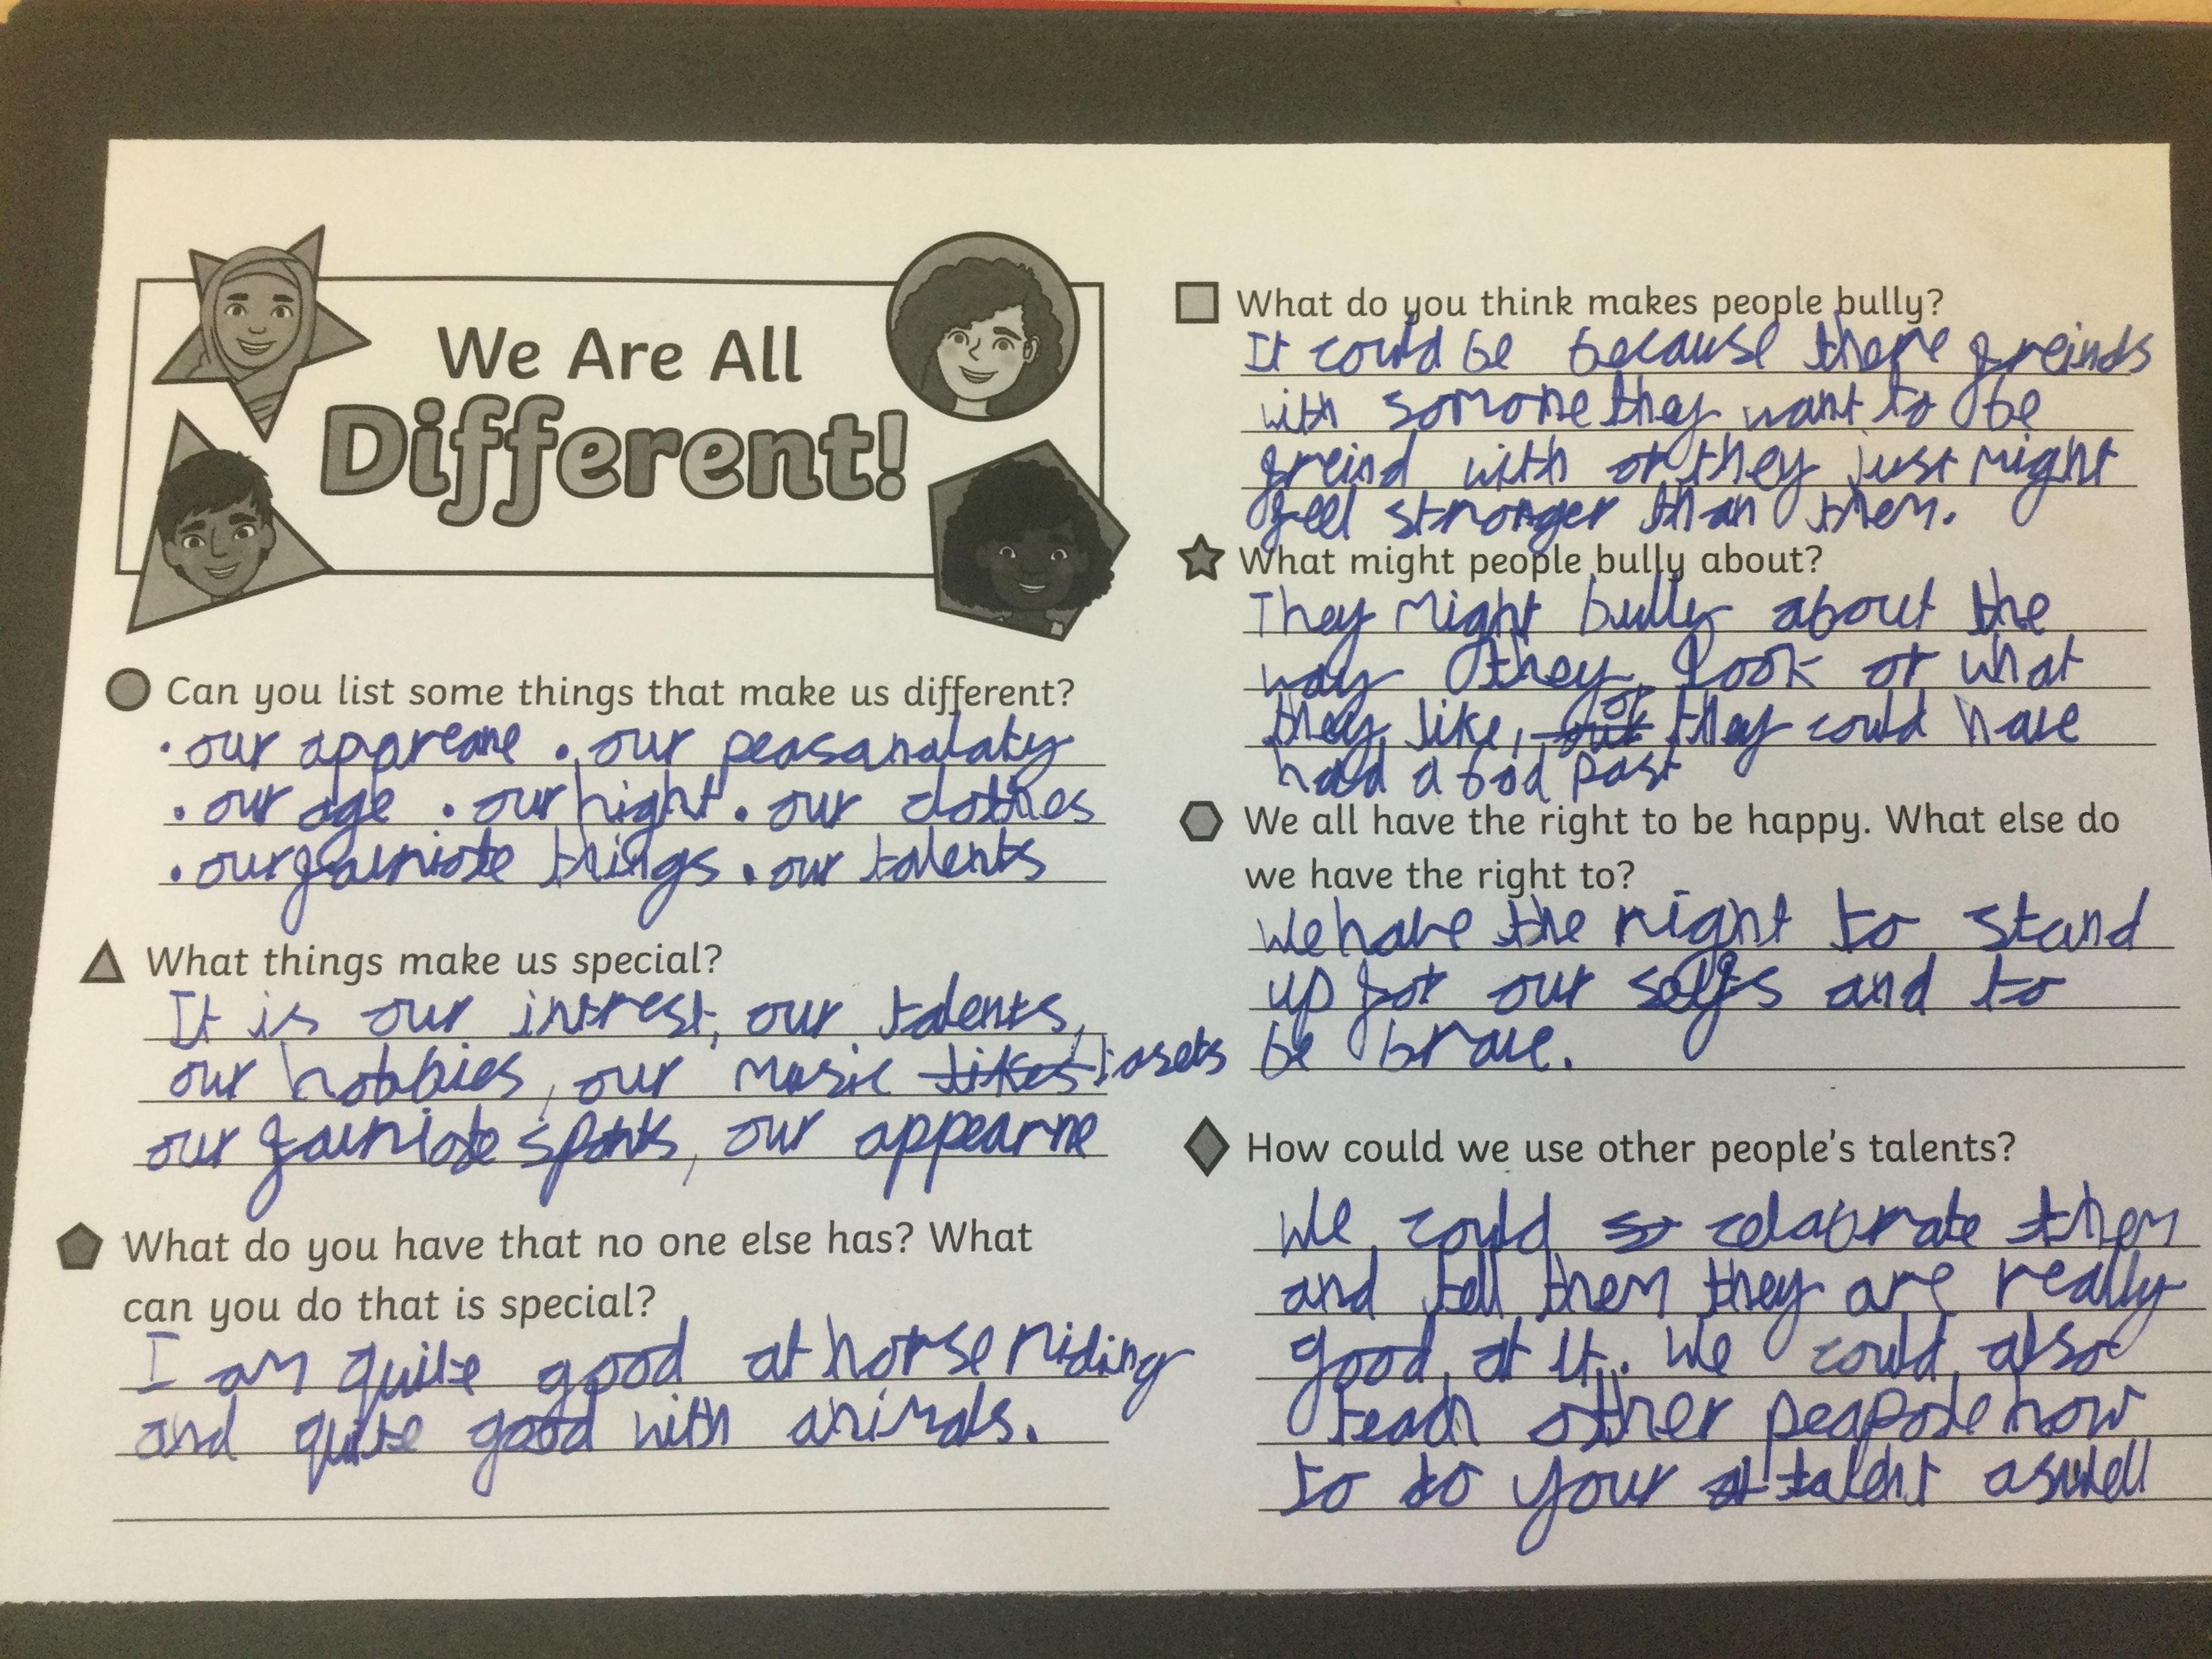 We Are All
Different!
Can you list some things that make us different?
• our appareane • our peasanalaty
• our age • our hight • our clothes
• our fauriote things • our talents
What things make us special?
It is our intrest, our talents,
our hobbies, our music likes tasets
our fauriote sports, our appearne
What do you have that no one else has? What
can you do that is special?
I am quite good at horse riding
and quite good with animals.
What do you think makes people bully?
It could be because there freinds
with somone they want to be
freind with or they just might
feel stronger than them.
What might people bully about?
They might bully about the
way they look or what
they like, or they could have
had a bad past
We all have the right to be happy. What else do
we have the right to?
We have the right to stand
up for our selfs and to
be brave.
How could we use other people's talents?
We could so celabrate them
and tell them they are really
good at it. We could also
teach other peapole how
to do your talent aswell